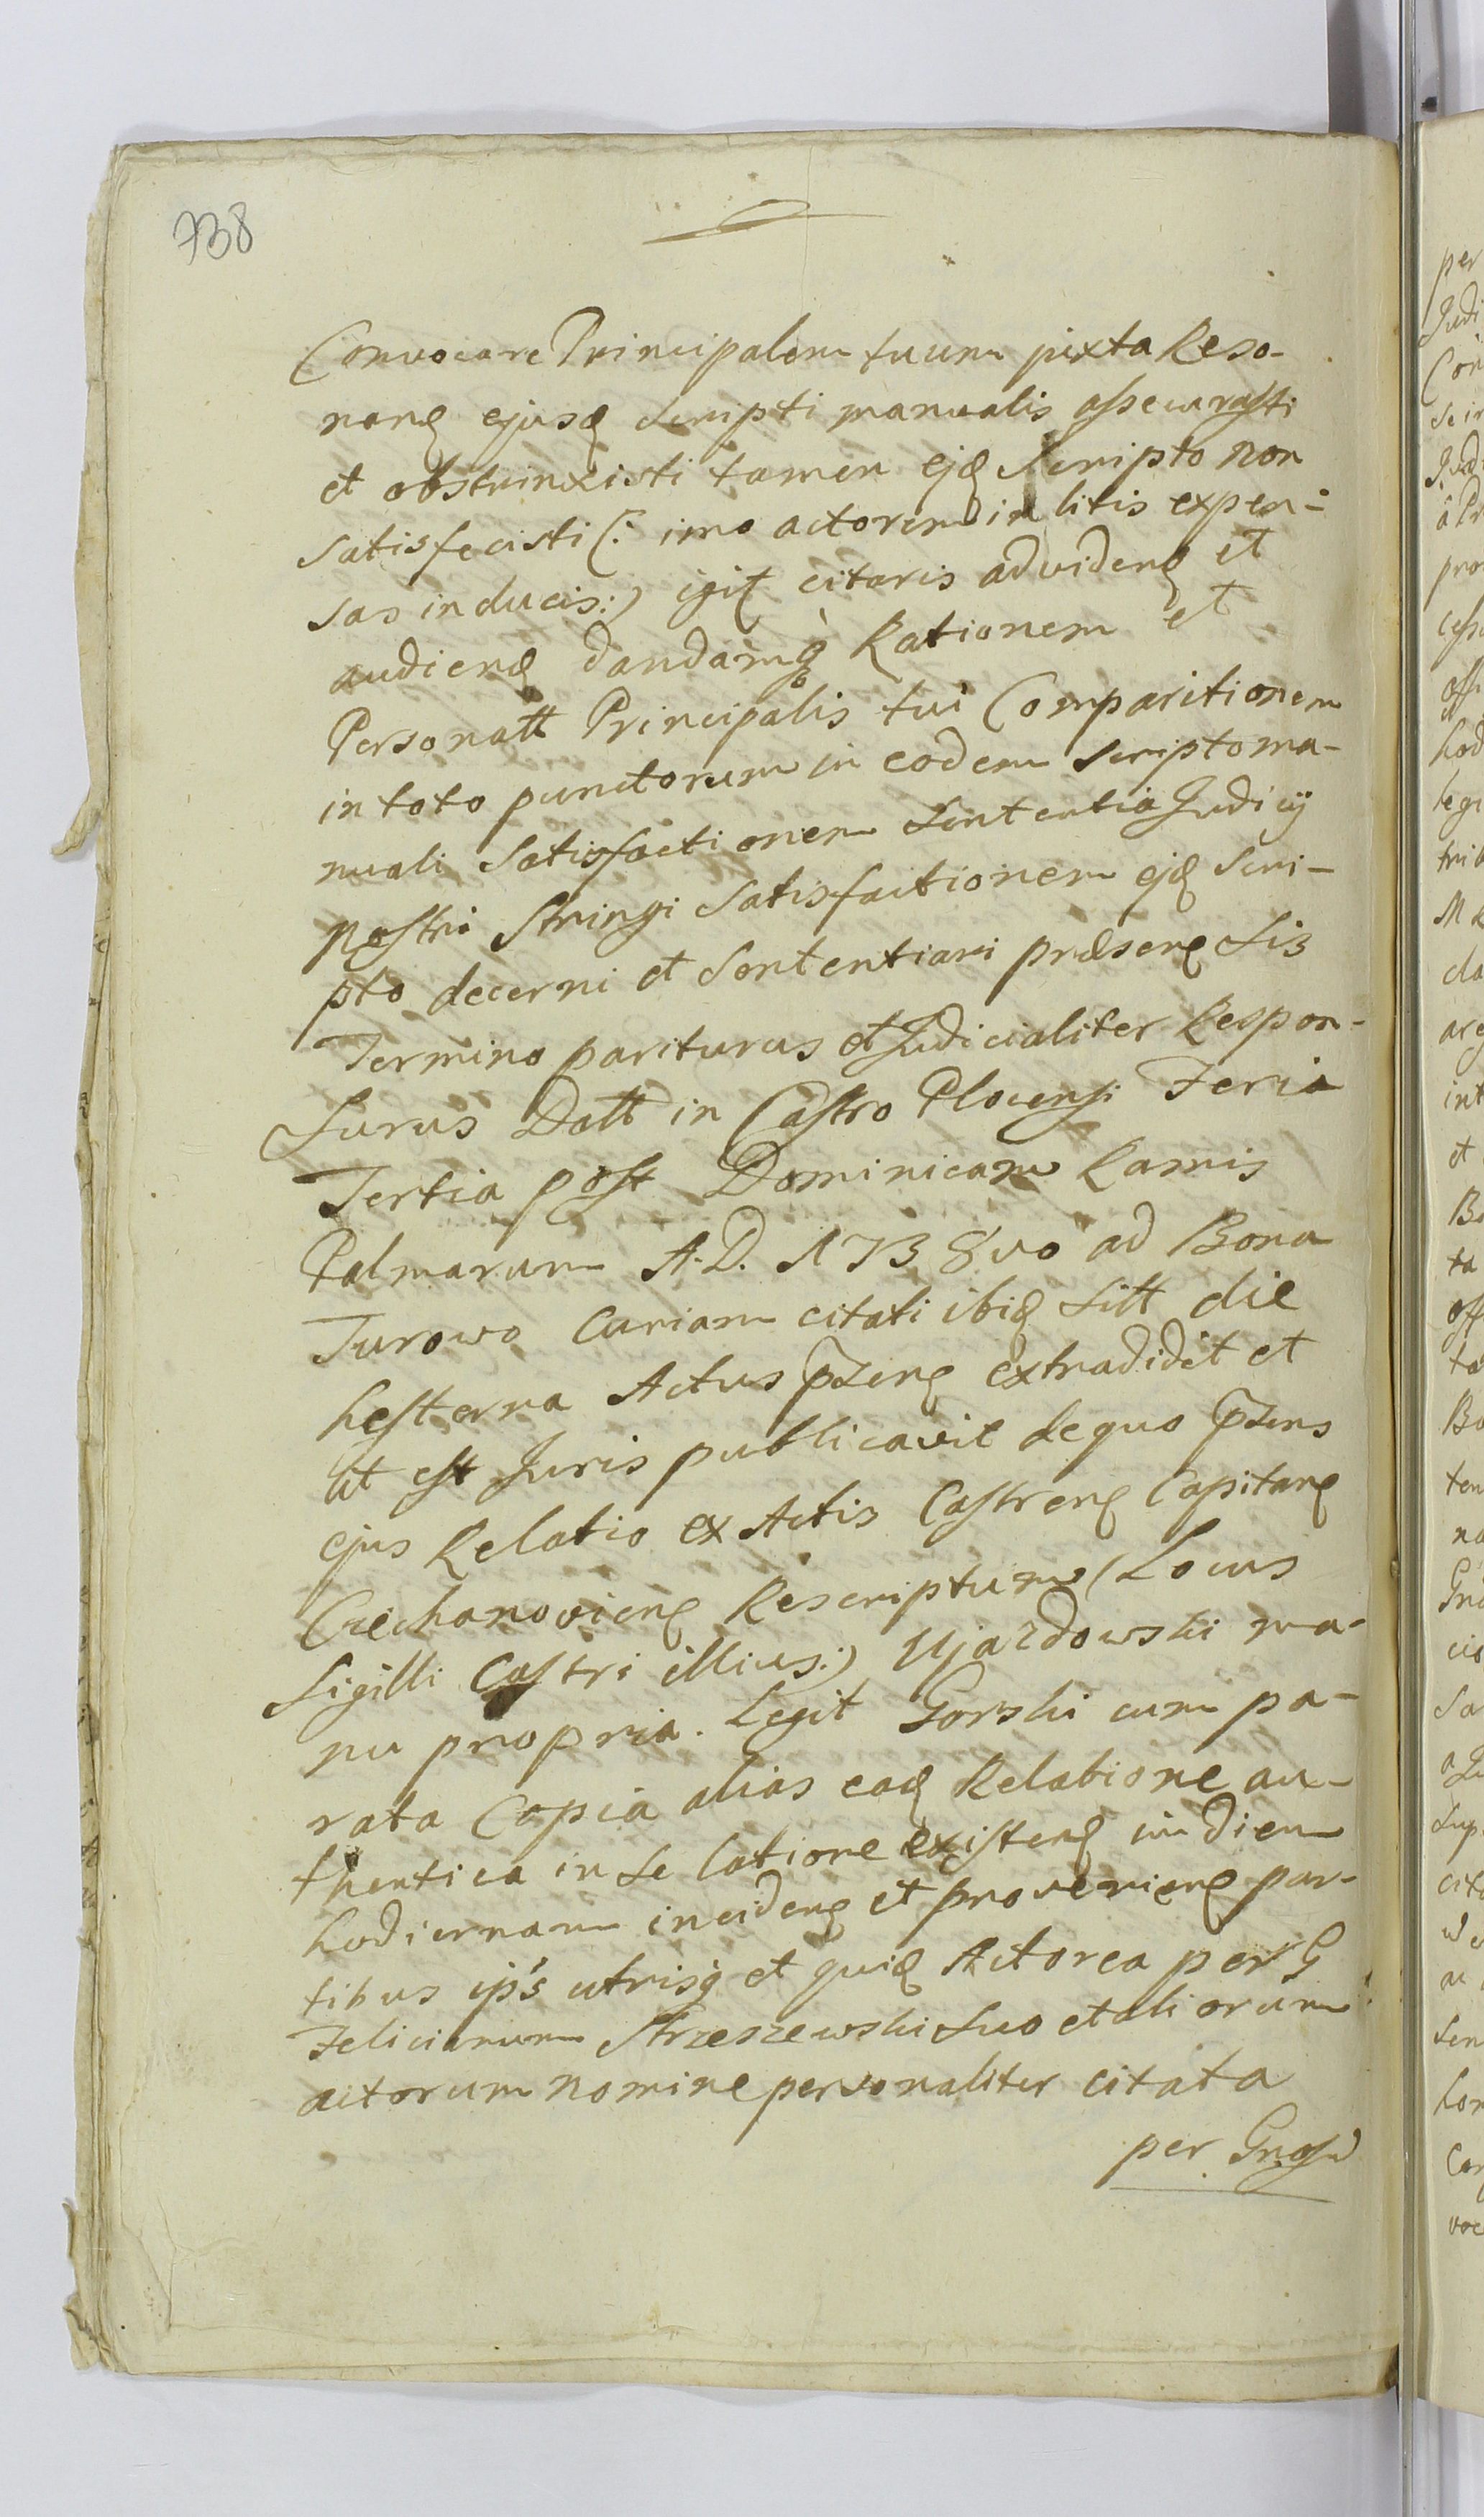 738
Convocare Principalem tuum juxta Reso-
nanȩ ejusȩ scripti manualis assecurasti
et obstrinxisti tamen ejȩ Scripto non
satisfecisti (: imo actorem in litis expen-
sas inducis:) igit citaris ad videnȩ et
audienȩ dandamq̀ Rationem et
Personatt Principalis tui Comparitionem
in toto punctorum in eodem scripto ma-
nuali satisfactionem Sententia Judicij
nostri stringi satisfactionem ejȩ scri-
pto decerni et sententiari præsenȩ sis
Termino pariturus et Judicialiter Respon-
surus Datt in Castro Plocensi Feria
Tertia post Dominicam Ramis
Palmarum A. D. 1738vo ad Bona
Turowo Curiam citati ibiȩ sitt die
hesterna Actus pt̃zenȩ extradidit et
ut est Juris publicavit de quo pt̃zens
ejus Relatio ex Actis Castrenȩ Capitanȩ
Ciechanovienȩ Rescriptum (Locus
Sigilli Castri illius:) Ujazdowski ma-
nu propria. Legit Gorski cum pa-
rata Copia alias eaȩ Relatione au-
thentica in se latione existenȩ in diem
hodiernam incidenȩ et provenienȩ par-
tibus ip's utrisq̀ et quiȩ Actorea per G
Felicianum Strzeszewski suo et aliorum
actorum nomine personaliter citata
per Gnosu